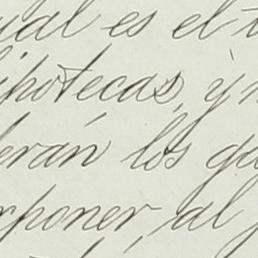 ual es el
hipotecas, y
erán los
poner, al